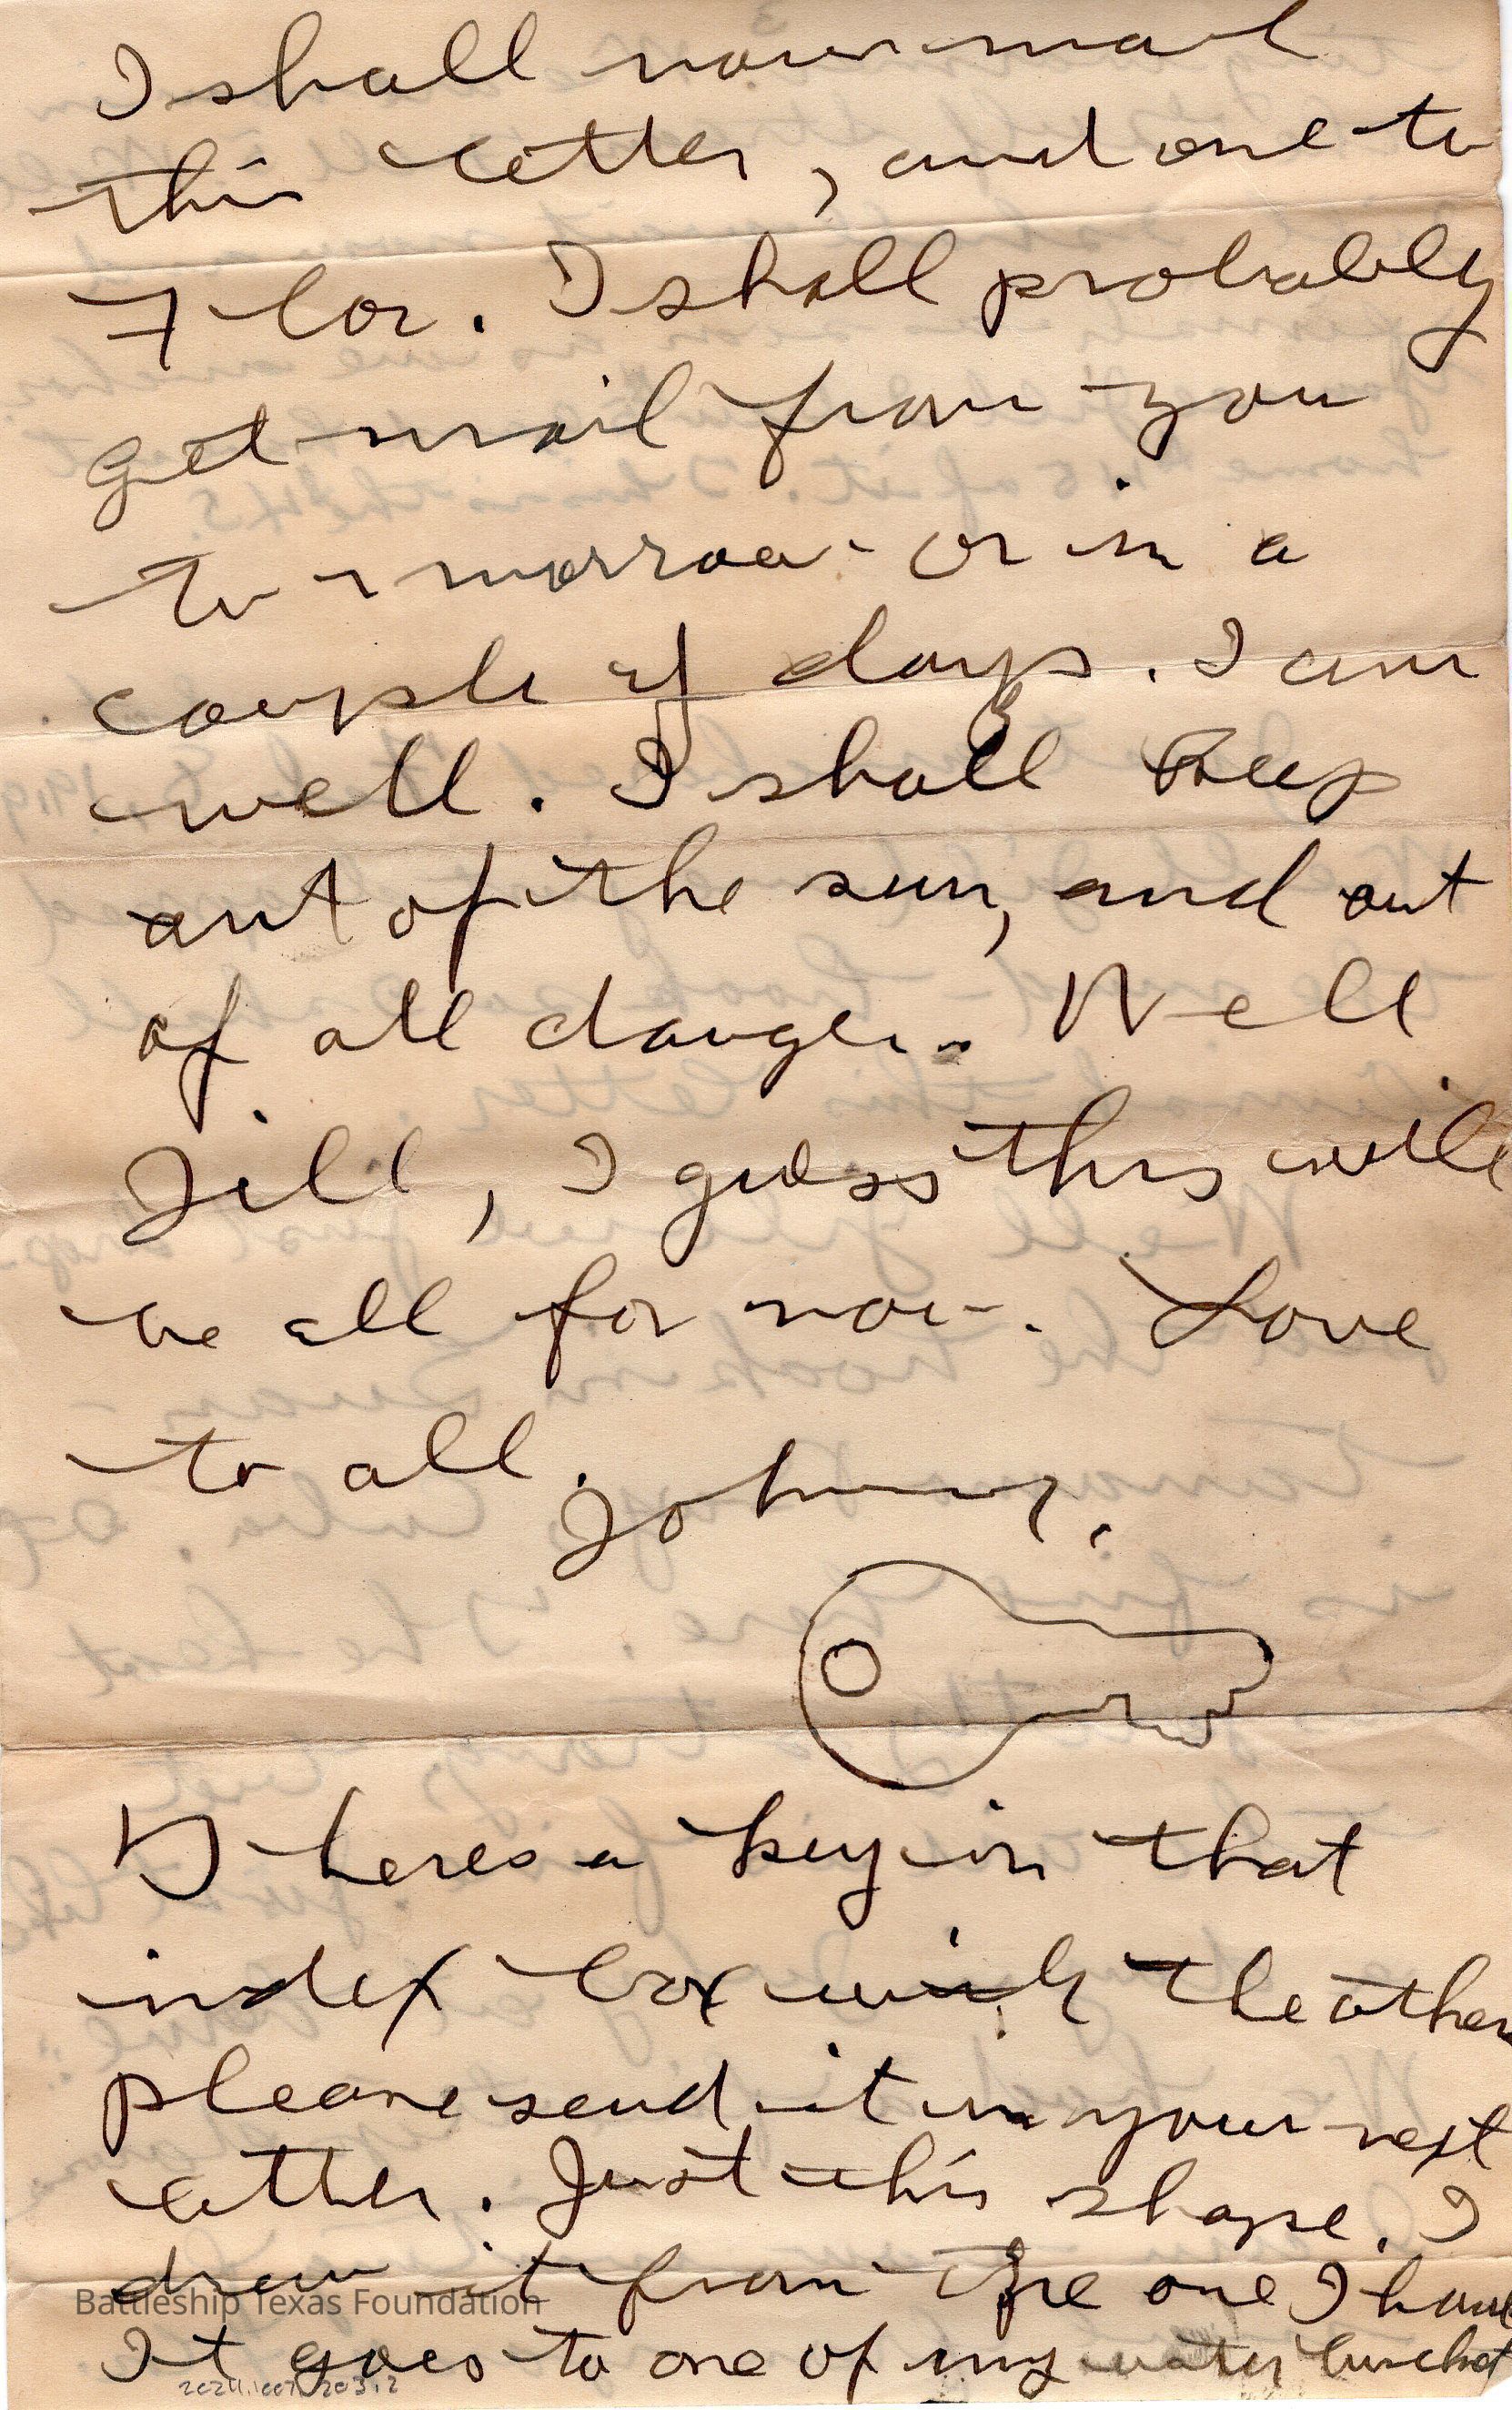 I shall now mail
this letter, and one to
Flor. I shall probably
get mail from you
to-morrow or in a
couple of days. I am
well. I shall keep
out of the sun, and out
of all danger. Well
Jill, I guess this will
be all for now. Love
to all.
Johnny.
Theres a key in that
index box with the others
please send it in your next
letter. Just this shape. I
drew it from the one I have
It goes to one of my water bucket
Battleship Texas Foundation
2024.1007.203.2